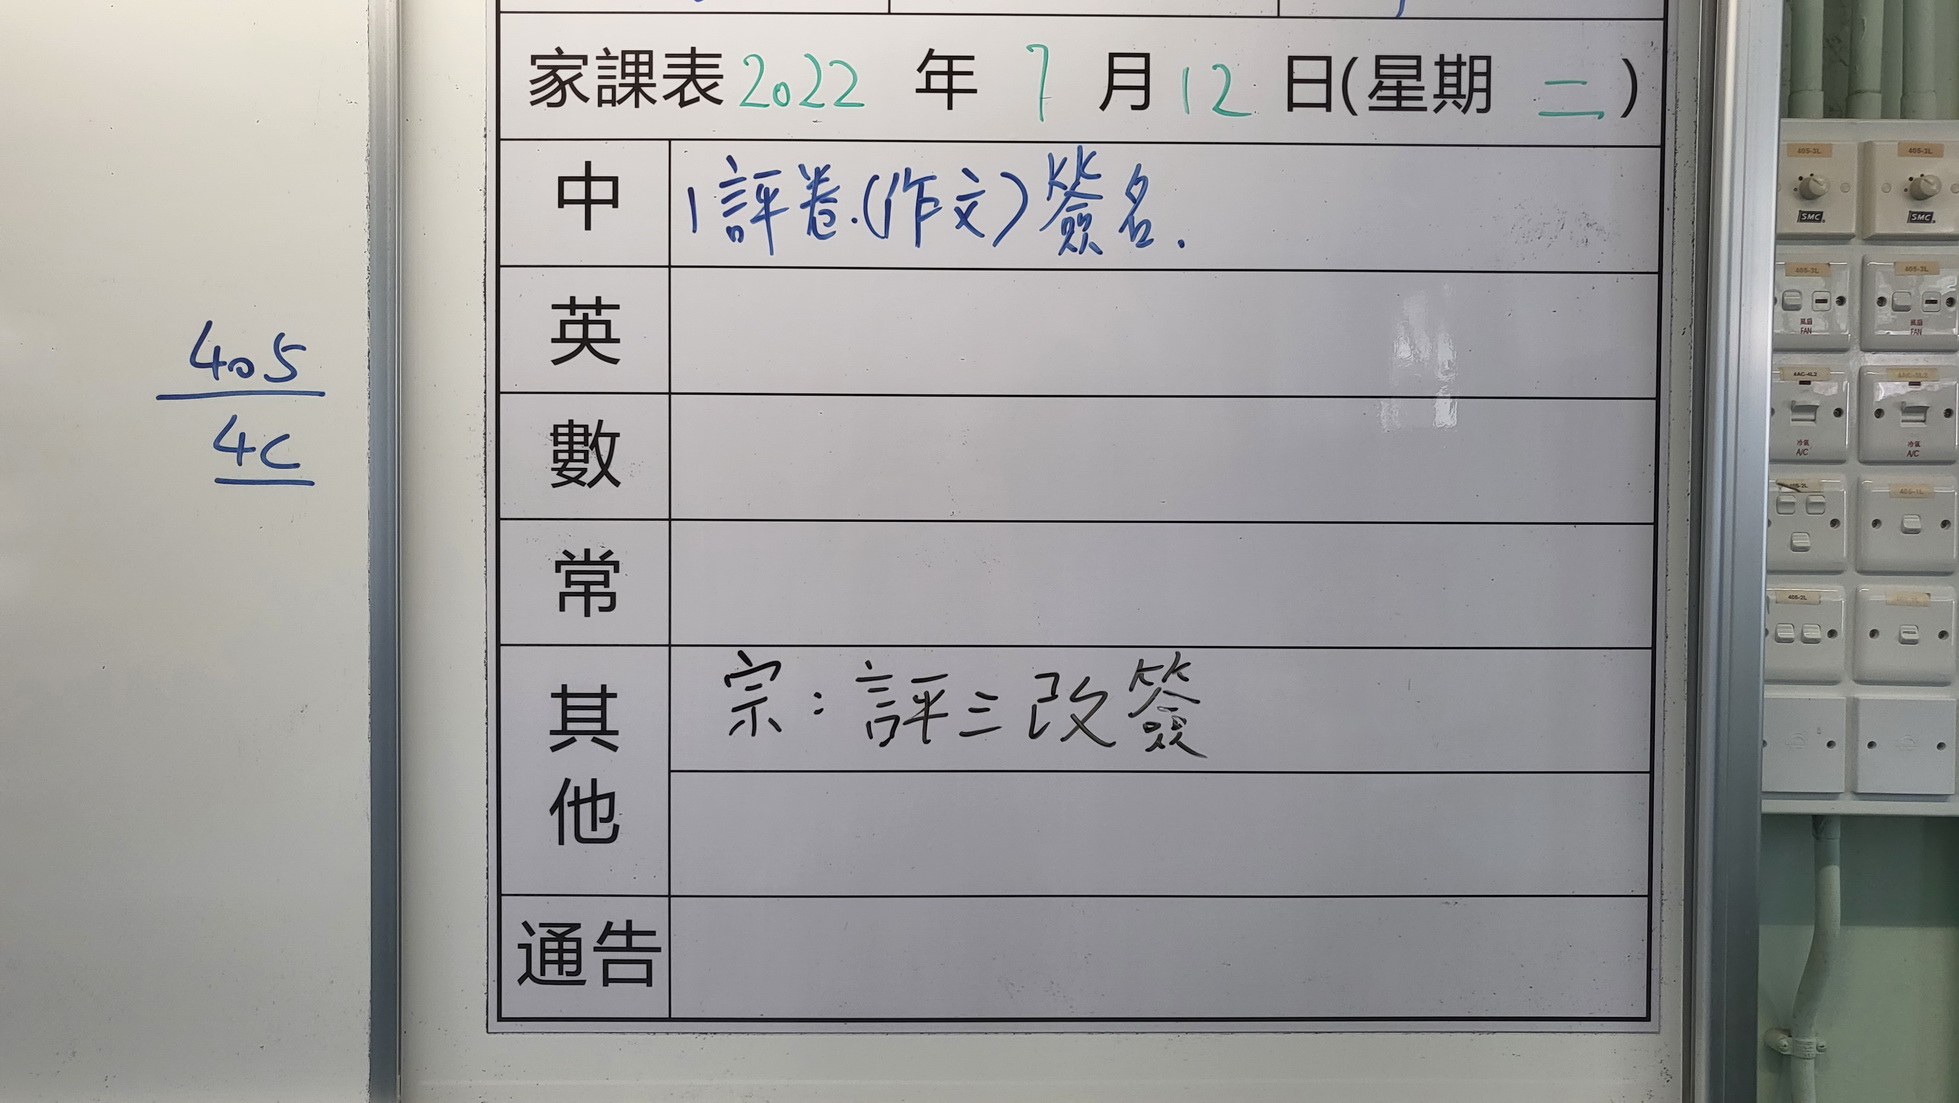 家課表 2022 年 7 月 12 日(星期 二)
中 1 評卷.(作文) 簽名.
英
數
常
其他 宗：評三改簽
通告
405
4C
405-3L 405-3L
SMC SMC
405-3L 405-3L
風扇 風扇
FAN FAN
4AC-4L2
冷氣 冷氣
A/C A/C
405-2L